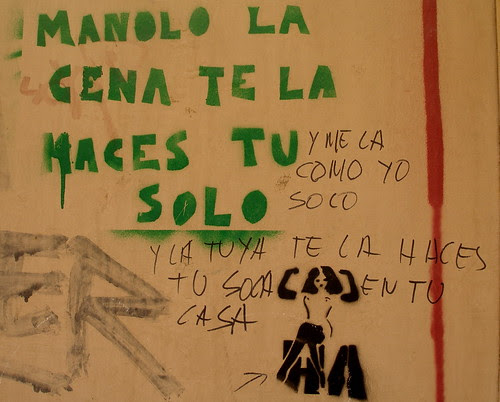 MANOLO LA
CENA TE LA
HACES TU
SOLO
Y ME LA
COMO YO
SOCO
Y LA TUYA TE LA HACES
TU SOCA EN TU
CASA
ER